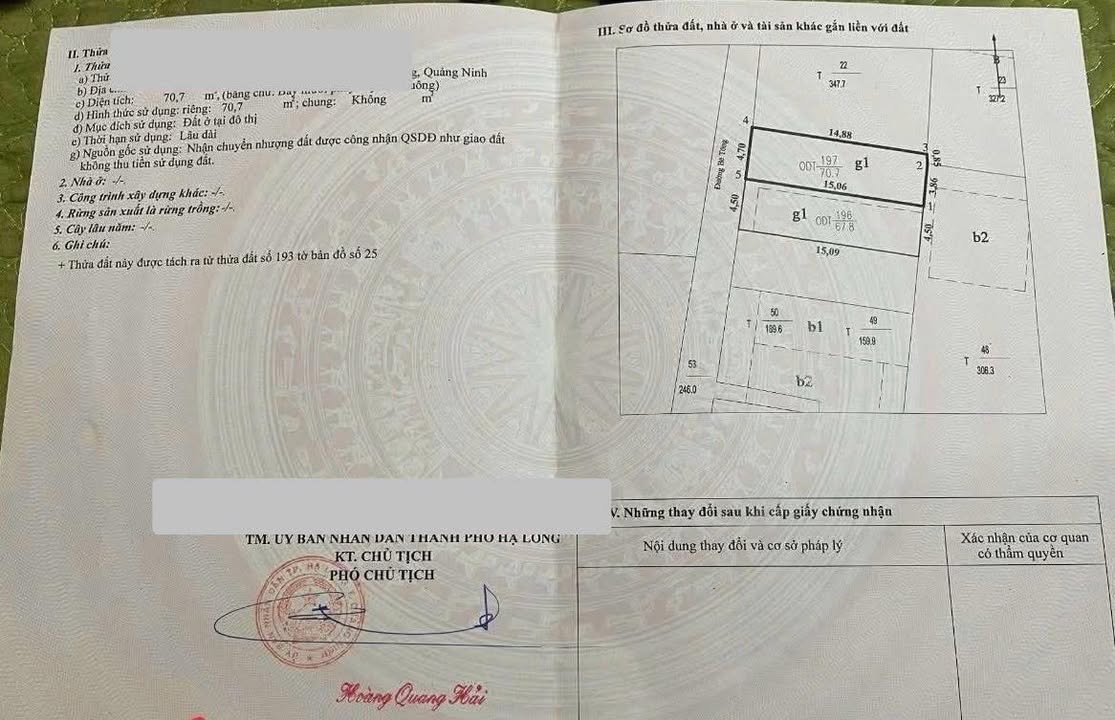 II. Thửa
1. Thửa
a) Thử
g, Quảng Ninh
b) Địa
c) Diện tích: 70,7 m², (bằng chữ:
d) Hình thức sử dụng: riêng: 70,7 m²; chung: Không m²
đ) Mục đích sử dụng: Đất ở tại đô thị
e) Thời hạn sử dụng: Lâu dài
g) Nguồn gốc sử dụng: Nhận chuyển nhượng đất được công nhận QSDĐ như giao đất
không thu tiền sử dụng đất.
2. Nhà ở: -/-.
3. Công trình xây dựng khác: -/-.
4. Rừng sản xuất là rừng trồng: -/-.
5. Cây lâu năm: -/-.
6. Ghi chú:
+ Thửa đất này được tách ra từ thửa đất số 193 tờ bản đồ số 25
TM. ỦY BAN NHÂN DÂN THÀNH PHỐ HẠ LONG
KT. CHỦ TỊCH
PHÓ CHỦ TỊCH
Hoàng Quang Hải
III. Sơ đồ thửa đất, nhà ở và tài sản khác gắn liền với đất
B
T 22
347.7
T 23
327.2
4
14,88
3
0,85
Đường Bê Tông
4,70
ODT 197
70.7
g1
2
5
15,06
3,86
1
4,50
g1
ODT 196
67.8
4,50
b2
15,09
T 50
189.6
b1
T 49
159.9
T 48
306.3
53
246.0
b2
V. Những thay đổi sau khi cấp giấy chứng nhận
Nội dung thay đổi và cơ sở pháp lý
Xác nhận của cơ quan
có thẩm quyền